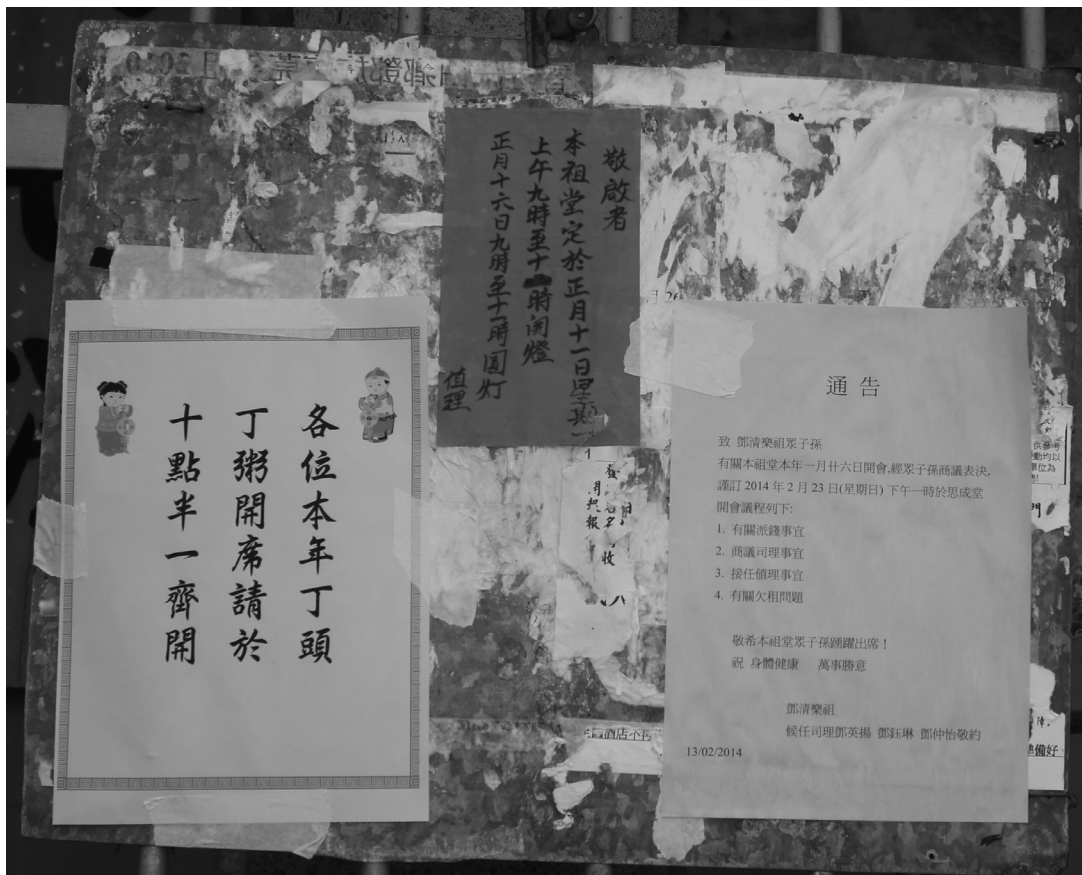 敬啟者
本祖堂定於正月十一日星期一
上午九時至十時開燈
正月十六日九時至十一時圓灯
值理
各位本年丁頭
丁粥開席請於
十點半一齊開
通告
致 鄧清樂祖眾子孫
有關本祖堂本年一月廿六日開會,經眾子孫商議表決,
謹訂 2014 年 2 月 23 日(星期日) 下午一時於思成堂
開會議程列下:
1. 有關派錢事宜
2. 商議司理事宜
3. 接任值理事宜
4. 有關欠租問題
敬希本祖堂眾子孫踴躍出席！
祝 身體健康 萬事勝意
鄧清樂祖
候任司理鄧英揚 鄧鈺琳 鄧仲怡敬約
13/02/2014
酒店不
準備好